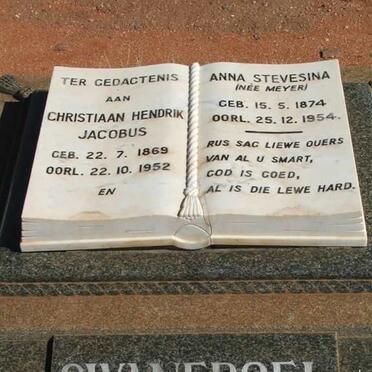 TER GEDACTENIS
AAN
CHRISTIAAN HENDRIK
JACOBUS
GEB. 22. 7. 1869
OORL. 22. 10. 1952
EN
ANNA STEVESINA
(NÉE MEYER)
GEB. 15. 5. 1874
OORL. 25. 12. 1954.
RUS SAG LIEWE OUERS
VAN AL U SMART,
GOD IS GOED,
AL IS DIE LEWE HARD.
SWANEPOEL